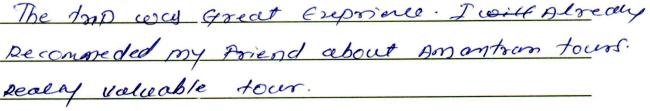 The trip was Great Exeprience. I will Already
Recommeded my Friend about Amantran tours.
Really valuable tour.